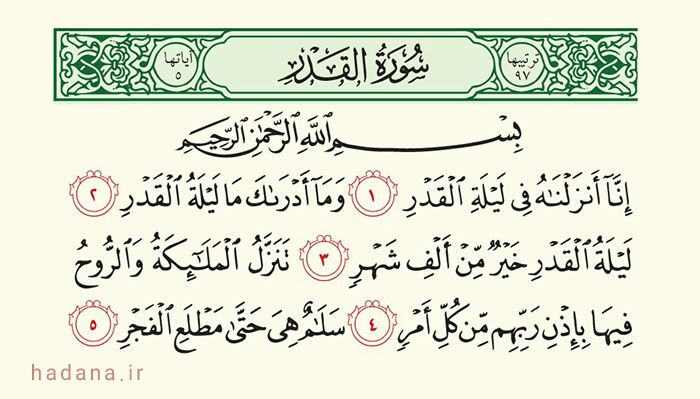 ترتيبها ٩٧ سُورَةُ القَدْرِ آياتها ٥
بِسْمِ اللَّهِ الرَّحْمَٰنِ الرَّحِيمِ
إِنَّآ أَنزَلْنَٰهُ فِى لَيْلَةِ ٱلْقَدْرِ ١ وَمَآ أَدْرَىٰكَ مَا لَيْلَةُ ٱلْقَدْرِ ٢
لَيْلَةُ ٱلْقَدْرِ خَيْرٌ مِّنْ أَلْفِ شَهْرٍ ٣ تَنَزَّلُ ٱلْمَلَٰٓئِكَةُ وَٱلرُّوحُ
فِيهَا بِإِذْنِ رَبِّهِم مِّن كُلِّ أَمْرٍ ٤ سَلَٰمٌ هِىَ حَتَّىٰ مَطْلَعِ ٱلْفَجْرِ ٥
hadana.ir